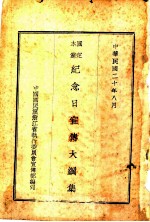 中華民國二十年八月
國定
本黨
紀念日宣傳大綱集
中國國民黨浙江省執行委員會宣傳部編印